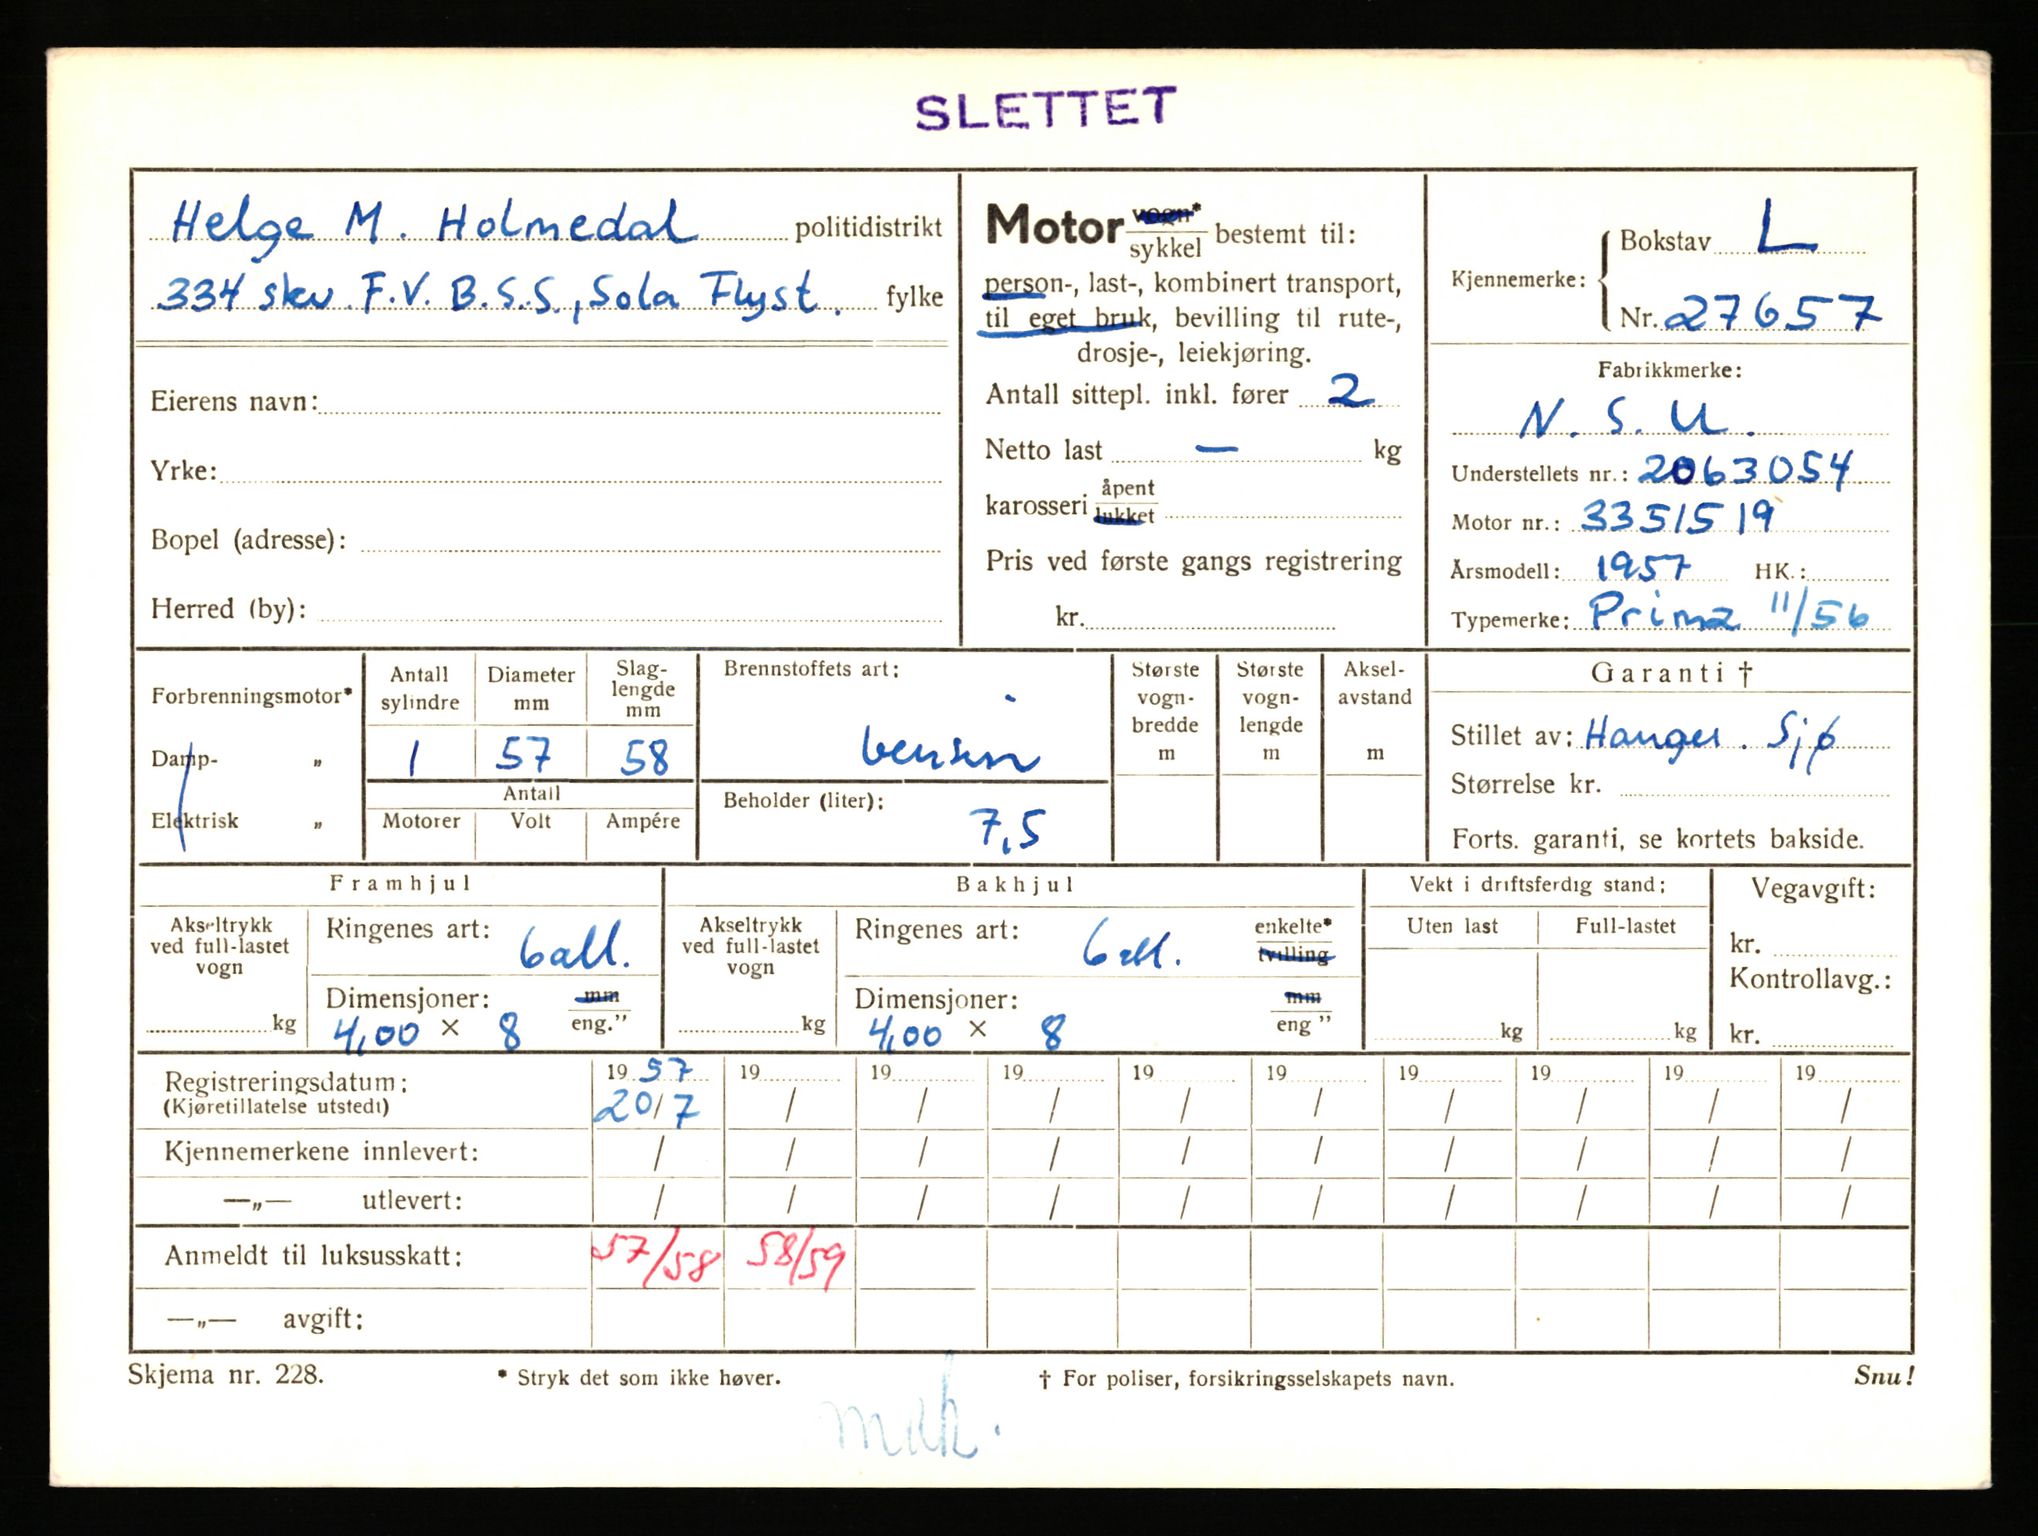 SLETTET
Helge M. Holmedal politidistrikt
334 skv. F.V. B.S.S., Sola Flyst. fylke
Eierens navn:
Yrke:
Bopel (adresse):
Herred (by):
Motor vogn* sykkel bestemt til:
person-, last-, kombinert transport,
til eget bruk, bevilling til rute-,
drosje-, leiekjøring.
Antall sittepl. inkl. fører 2
Netto last — kg
karosseri åpent lukket
Pris ved første gangs registrering
kr.
Kjennemerke: Bokstav L
Nr. 27657
Fabrikkmerke:
N.S.U.
Understellets nr.: 2063054
Motor nr.: 3351519
Årsmodell: 1957 HK.:
Typemerke: Prima 11/56
Forbrenningsmotor*
Damp- „
Elektrisk „
Antall sylindre
Diameter mm
Slag-lengde mm
1 57 58
Antall
Motorer Volt Ampére
Brennstoffets art:
bensin
Beholder (liter):
7,5
Største vogn-bredde m
Største vogn-lengde m
Aksel-avstand m
Garanti †
Stillet av: Hauger. Sjø
Størrelse kr.
Forts. garanti, se kortets bakside.
Framhjul
Akseltrykk ved full-lastet vogn
kg
Ringenes art: ball.
Dimensjoner: mm eng."
4,00 × 8
Bakhjul
Akseltrykk ved full-lastet vogn
kg
Ringenes art: ball. enkelte* tvilling
Dimensjoner: mm eng "
4,00 × 8
Vekt i driftsferdig stand:
Uten last Full-lastet
kg kg
Vegavgift:
kr.
Kontrollavg.:
kr.
Registreringsdatum: 19 57 19 19 19 19 19 19 19 19 19
(Kjøretillatelse utstedt) 20/7 / / / / / / / / /
Kjennemerkene innlevert: / / / / / / / / / /
—„— utlevert: / / / / / / / / / /
Anmeldt til luksusskatt: 57/58 58/59
—„— avgift:
Skjema nr. 228. * Stryk det som ikke høver. † For poliser, forsikringsselskapets navn. Snu!